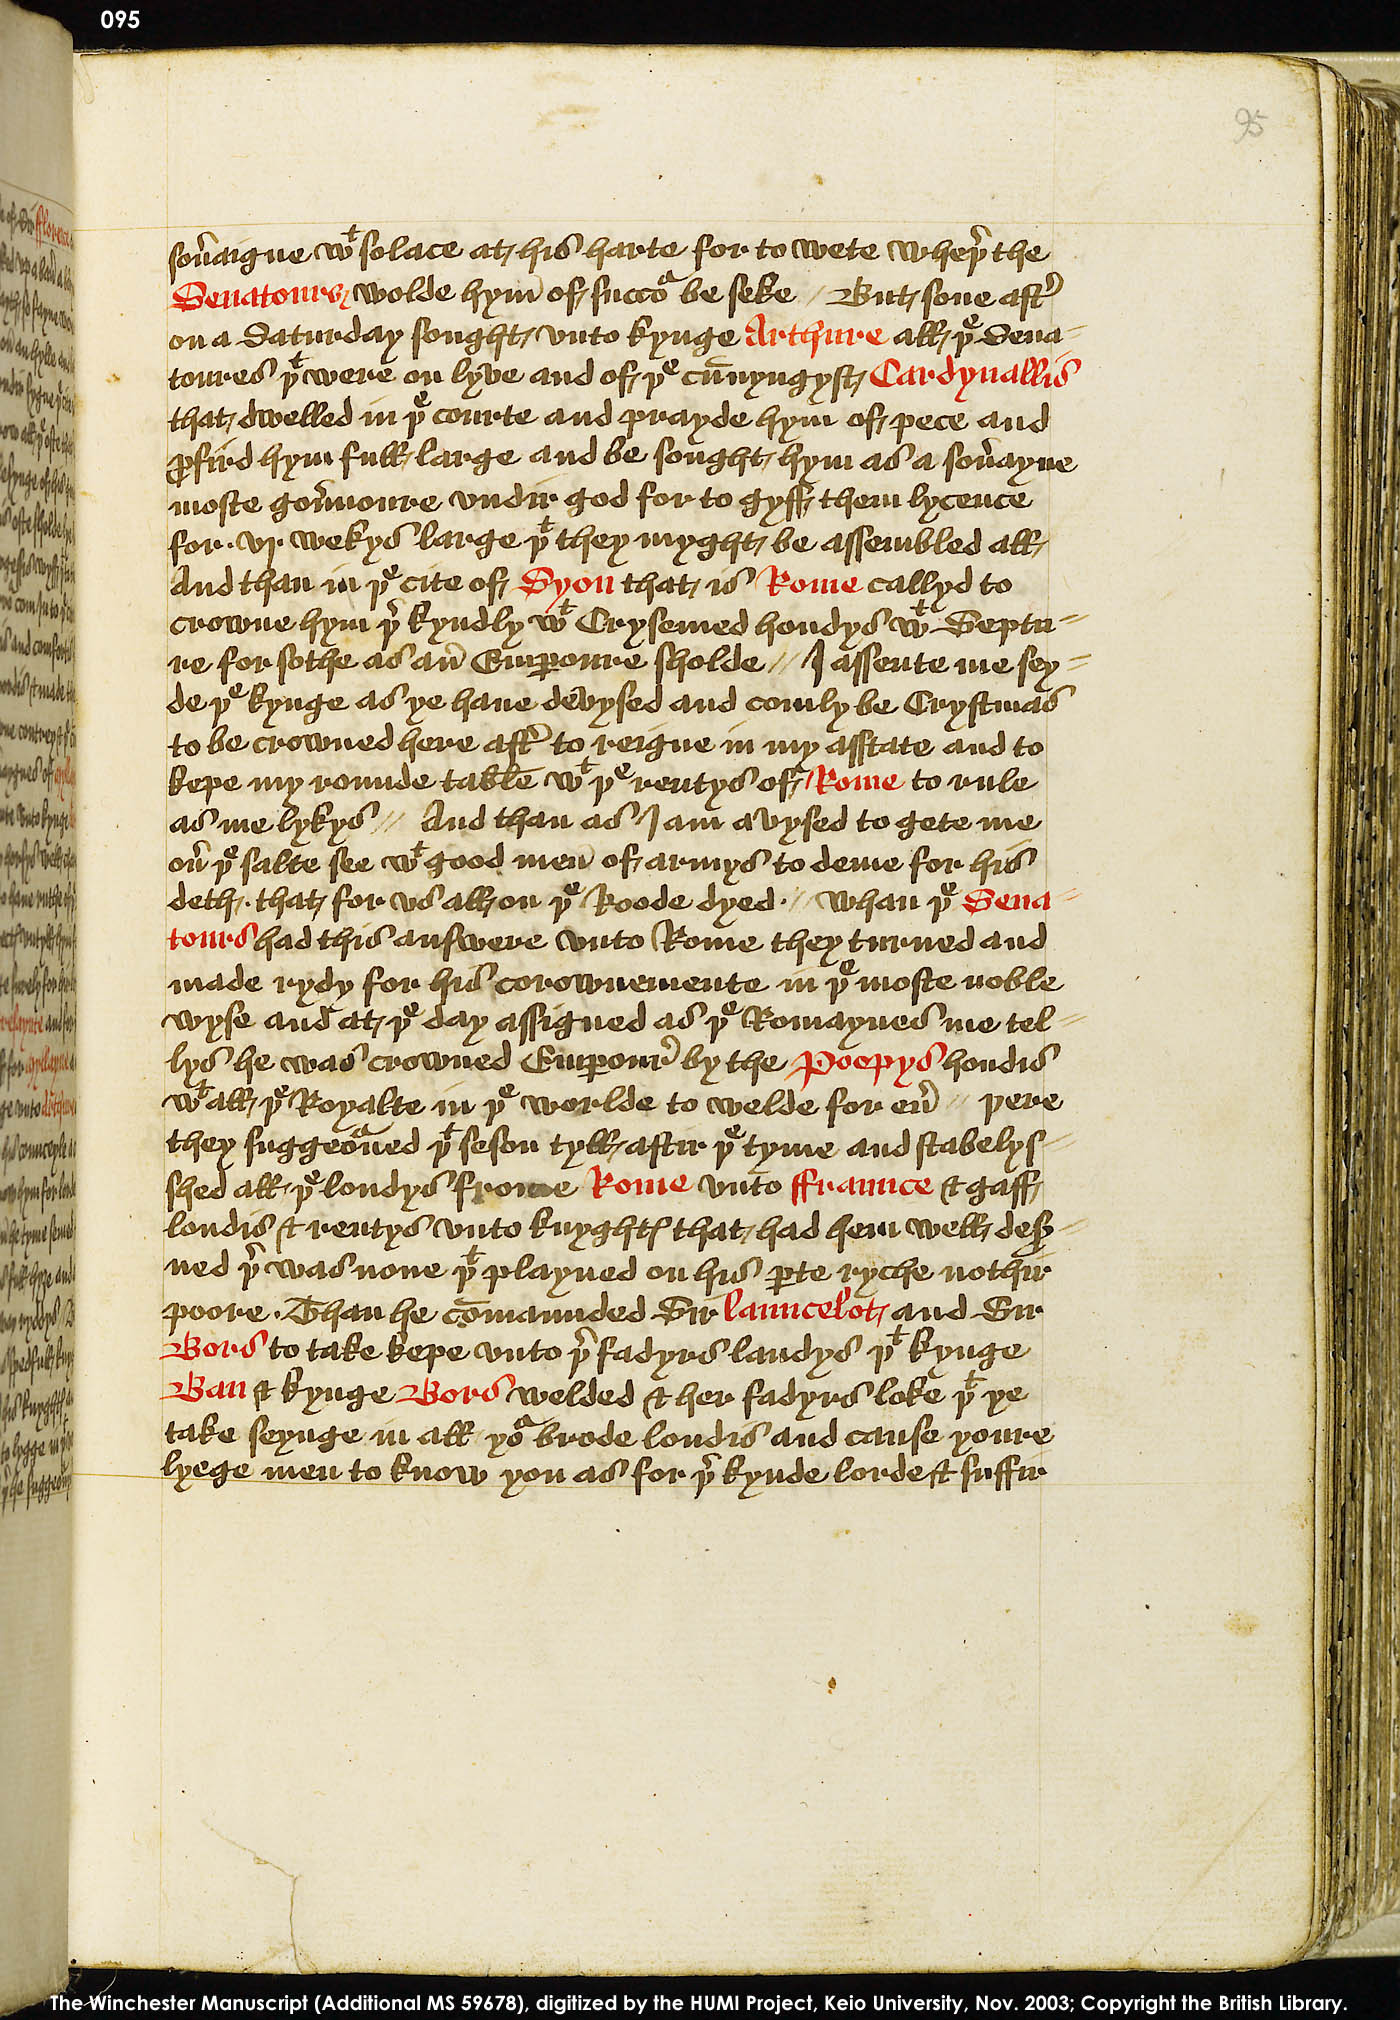 095
95
sou̅aigne wᵗ solace at his harte for to wete wheþ̉ the
Senatours wolde hym of succoᵃ be seke // But sone aft̉
on a Saturday sought vnto kynge Arthure all þᵉ Sena-
toures þᵗ were on lyve and of þᵉ cu̅nyngyst Cardynallis
that dwelled in þᵉ courte and prayde hym of pece and
ꝓfird hym full large and be sought hym as a sou̅ayne
moste gou̅noure vndir god for to gyff them lycence
for · vj · wekys large þᵗ they myght be assembled all
And than in þᵉ cite of Syon that is Rome callyd to
crowne hym þ̉ kyndly wᵗ Crysemed hondys wᵗ Septu-
re for sothe as an̅ Emꝑoure sholde // I assente me sey-
de þᵉ kynge as ye haue devysed and comly be Crystmas
to be crowned here aft̉ to reigne in my asstate and to
kepe my rounde table wᵗ þᵉ rentys of Rome to rule
as me lykys // And than as I am avysed to gete me
ou̅ þᵉ salte see wᵗ good men of armys to deme for his
deth · that for vs all on þᵉ Roode dyed · // whan þᵉ Sena-
tours had this answere vnto Rome they turned and
made rydy for his corownemente in þᵉ moste noble
wyse and at þᵉ day assigned as þᵉ Romaynes me tel-
lys he was crowned Emꝑour̉ by the Poopys hondis
wᵗ all þᵉ Royalte in þᵉ worlde to welde for eu̅ // þere
they suggeoᵃned þᵗ seson tyll aftir þᵉ tyme and stabelys-
shed all þᵉ londys frome Rome vnto ffraunce & gaff
londis & rentys vnto knyghtꝭ that had hem well des̉-
ned þ̉ was none þᵗ playned on his ꝑte ryche nothir
poore · Than he co̅maunded Sir launcelot and Sir
Bors to take kepe vnto þ̉ fadyrs landys þᵗ kynge
Ban & kynge Bors welded & her fadyrs loke þᵗ ye
take seynge in all yoᵃ brode londis and cause youre
lyege men to know you as for þ̉ kynde lorde & suffir
The Winchester Manuscript (Additional MS 59678), digitized by the HUMI Project, Keio University, Nov. 2003; Copyright the British Library.